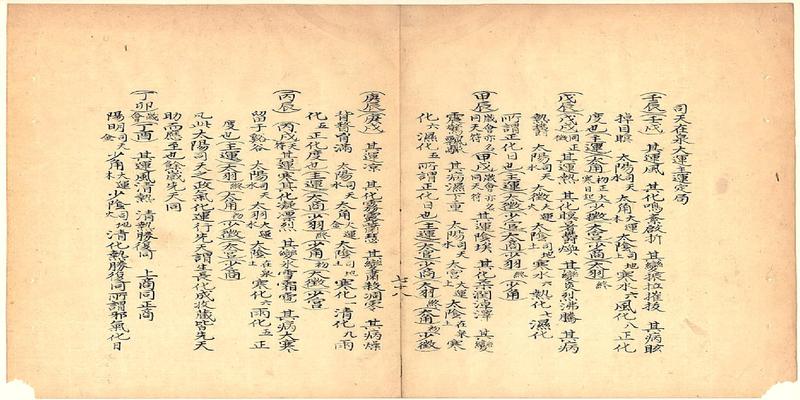 司天在泉大運主運定局
壬辰 壬戌 其運風 其化鳴紊啟折 其變振拉摧拔 其病眩
掉目瞑 太陽司天水 太角大運木 太陰司地土 寒化六 風化八 正化
度也 主運 太角初正 少徵 太宮 少商 太羽終
戊辰 戊戌同正徵 其運熱 其化暄暑鬱燠 其變炎烈沸騰 其病
熱鬱 太陽司天水 太徵大運火 太陰司地土 寒化六 熱化七 濕化
所謂正化日也 主運 少徵 太宮 少商 太羽終 少角初
甲辰歲會同天符 甲戌歲會亦名同天符 其運陰埃 其化柔潤重澤 其變
震驚飄驟 其病濕下重 太陽司天水 太宮大運土 太陰在泉土 寒
化六 濕化五 所謂正化日也 主運 太宮 少商 太羽終 太角初 少徵
庚辰 庚戌 其運涼 其化霧露蕭飋 其變肅殺凋零 其病燥
背瞀胷滿 太陽司天水 太商大運金 太陰司地土 寒化一 清化九 雨
化五 正化度也 主運 太商 少羽終 少角初 太徵 少宮
丙辰天符 丙戌天符 其運寒 其化凝慘凓冽 其變冰雪霜雹 其病大寒
留于谿谷 太陽司天水 太羽大運水 太陰在泉土 寒化六 雨化五 正
度也 主運 太羽終 太角初 少徵 太宮 少商
凡此太陽司天之政 氣化運行先天 謂生長化成收藏皆先天
助而應至也 餘歲先天同
丁卯歲會 丁酉 其運風清熱 清熱勝復同 上商同正商
陽明司天金 少角大運木 少陰司地火 清化熱化勝復同 所謂邪氣化日